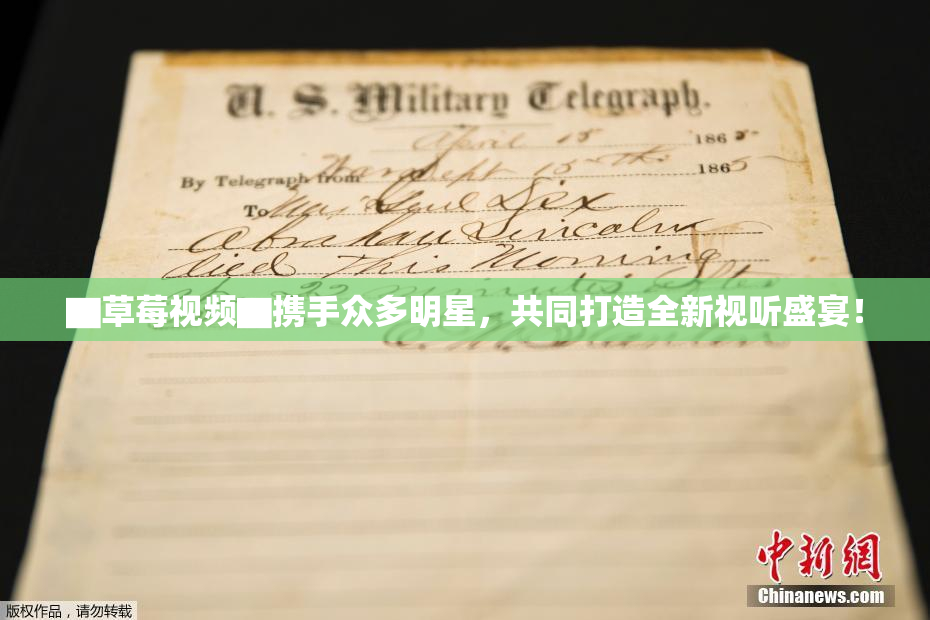 U. S. Military Telegraph.
April 15 1865
By Telegraph from War Dept 15th 1865
To Maj Genl Dix
Abraham Lincoln
died This Morning
22 minutes after
▇草莓视频▇携手众多明星，共同打造全新视听盛宴！
E. M. Stanton
中新网
Chinanews.com
版权作品，请勿转载